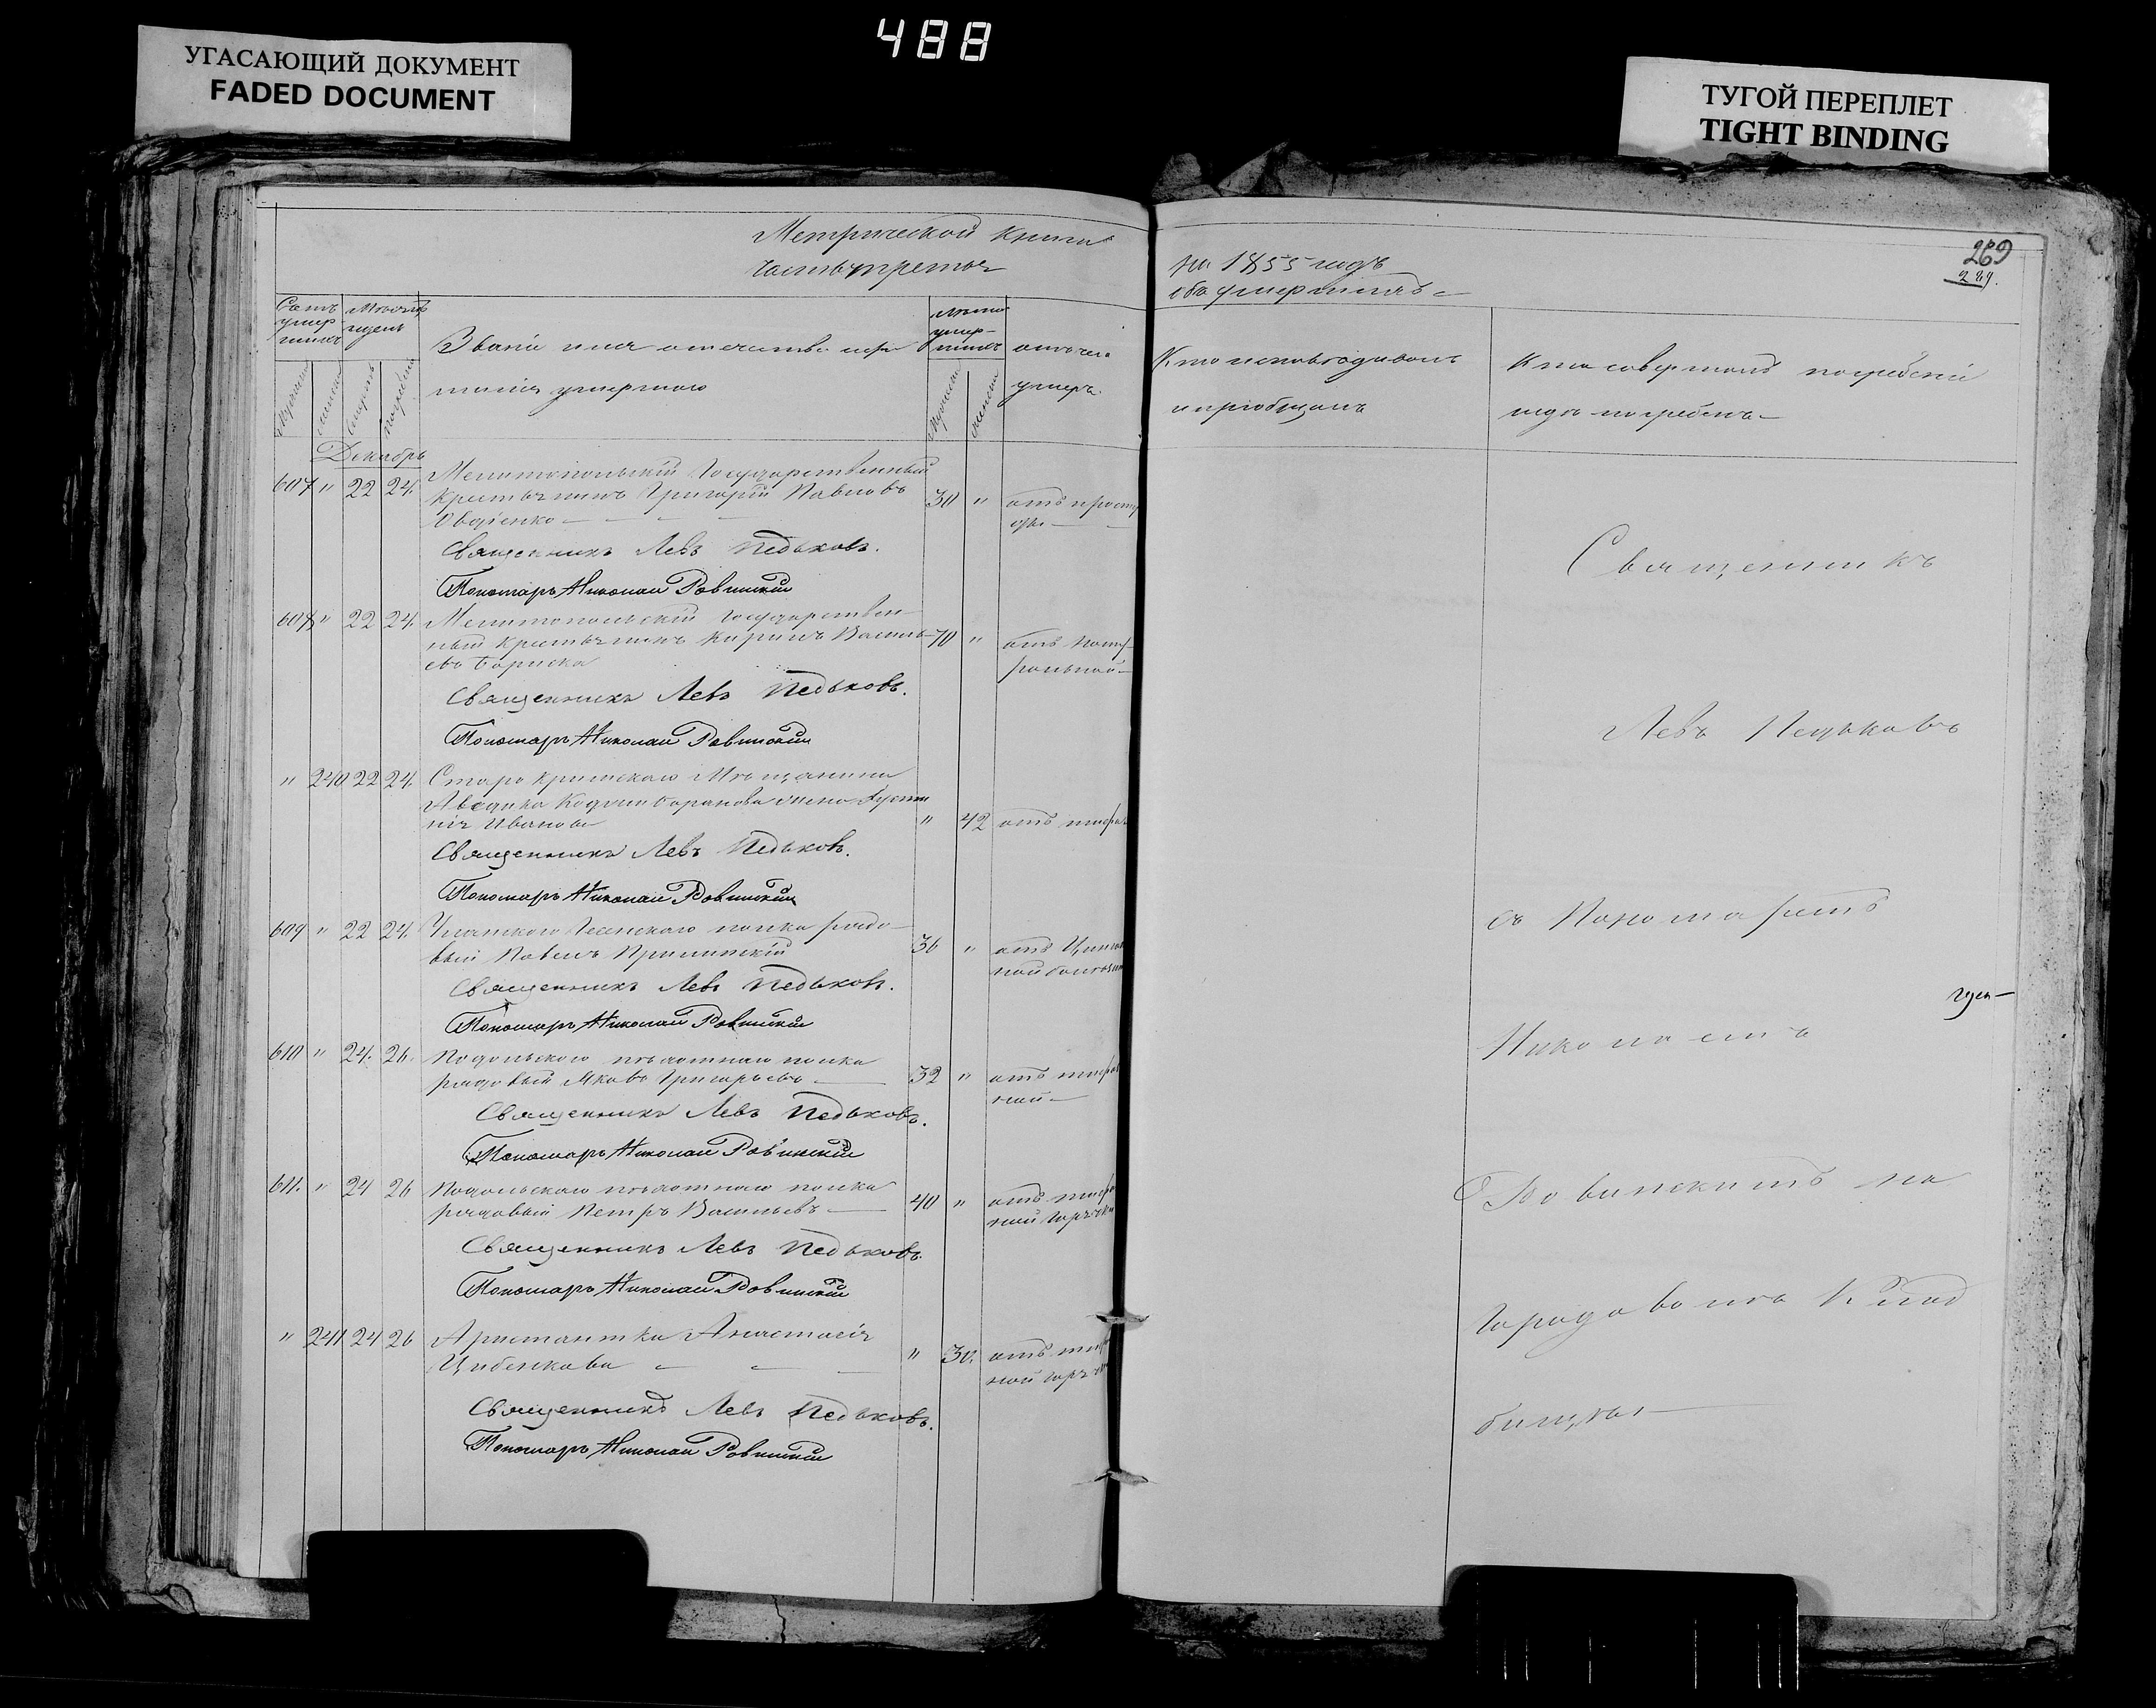 488
УГАСАЮЩИЙ ДОКУМЕНТ
FADED DOCUMENT
ТУГОЙ ПЕРЕПЛЕТ
TIGHT BINDING
Метрической книги
часть третья
на 1855 годъ
объ умершихъ
269
289.
Счетъ умершихъ
Мѣсяцъ и день
Званіе имя отчество и фа
милія умершаго
Лѣта умершихъ
отъ чего
умеръ
Кто исповѣдывалъ
и пріобщалъ
Кто совершалъ погребеніе
и гдѣ погребенъ
Декабрь
607 " 22 24. Мелитопольскій Государственный
крестьянинъ Григорій Павловъ 30 " отъ просту
Овдіенко ды
Священникъ Левъ Педьковъ.
Пономарь Николай Ровинскій
608 " 22 24. Мелитопольскій Государствен
ный крестьянинъ Кирилъ Василь 70 " отъ Нату
евъ Бориско ральной
Священникъ Левъ Педьковъ.
Пономарь Николай Ровинскій
" 240 22 24. Старо крымскаго Мѣщанина
жена
нія Иванова " 42 отъ
Священникъ Левъ Педьковъ.
Пономарь Николай Ровинскій
609 " 22 24. Уланскаго полка рядо
вый Павелъ 36 " отъ Цынгот
ной болѣзни
Священникъ Левъ Педьковъ.
Пономарь Николай Ровинскій
610 " 24. 26. Подольскаго пѣхотнаго полка
рядовый Яковъ Григорьевъ 32 " отъ
ной
Священникъ Левъ Педьковъ.
Пономарь Николай Ровинскій
611. " 24 26 Подольскаго пѣхотнаго полка
рядовый Петръ Васильевъ 40 " отъ
ной горячки
Священникъ Левъ Педьковъ.
Пономарь Николай Ровинскій
" 241 24 26 Арестантка Анастасія
Цибенкова " 30. отъ
ной горяч
Священникъ Левъ Педьковъ.
Пономарь Николай Ровинскій
Священникъ
Левъ Педьковъ
съ Пономаремъ
Николаемъ
Ровинскимъ на
Городовомъ Клад
бищѣ